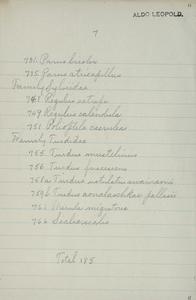 ALDO LEOPOLD.
7
731. Parus bicolor
735. Parus atricapillus
Family Sylviidae
748 Regulus satrapa
749 Regulus calendula
751 Polioptila caerulea
Family Turdidae
755. Turdus mustelinus
756. Turdus fuscescens
758a Turdus ustulatus swainsonii
759b Turdus aonalaschkae pallasii
761 Merula migratoria
766 Sialia sialis
Total 185